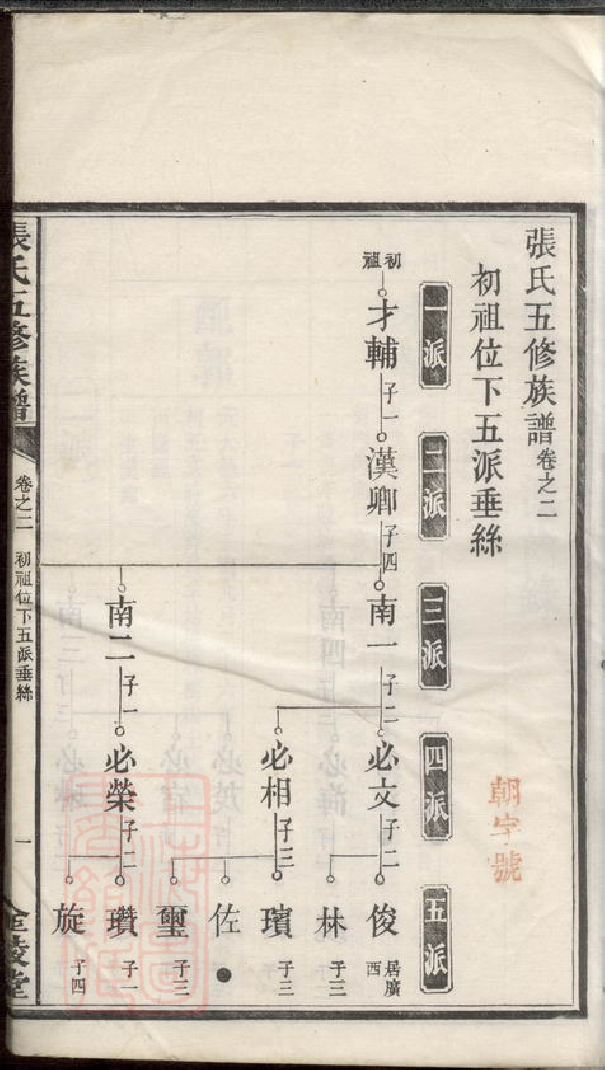 張氏五修族譜卷之二
初祖位下五派垂絲
朝字號
一派
二派
三派
四派
五派
初祖
才輔
子一
漢卿
子四
南一
子二
必文
子二
俊
居廣西
林
子三
必相
子三
璸
子三
佐
璽
子三
南二
子一
必榮
子二
瓚
子一
旋
子四
張氏五修族譜
卷之二
初祖位下五派垂絲
一